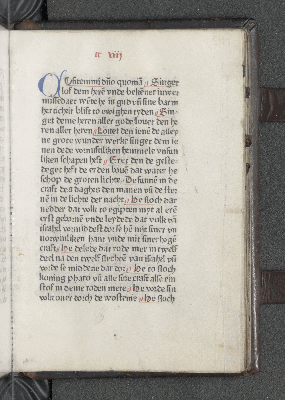 Confitemini dño quoniā Singet
lof dem herē vnde bekēnet iuwer
missedaet wēte he is gud vñ sine barm
herticheit blift to ewighen tyden Sin
get deme heren aller gode louet den he
ren aller heren Louet den iene de alley
ne grote wunder werke singet dem ie
nen de de vornuftliken hemmele
liken schapen heft Eret den de geste
deget heft de erden bouē dat water he
schop de groten lichte De sunnē in de
craft des daghes den manen vñ de ster
nē in de lichte der nacht He sloch dar
nedder dat volk to egipten myt al erē
erst gebornē vnde leydede dar volk vā
israhel vormiddest dorch er midden vn
siner hant vnde mit siner hogē
craft He deelde dat rode mer in twelf
deel na den twelf slechten van israhel vñ
vorde se midden dar dor He to sloch
koning pharo vñ alle sine craft alse ein
stof in deme roden mere He vorde sin
volk ouer dorch de wostenie He sloch